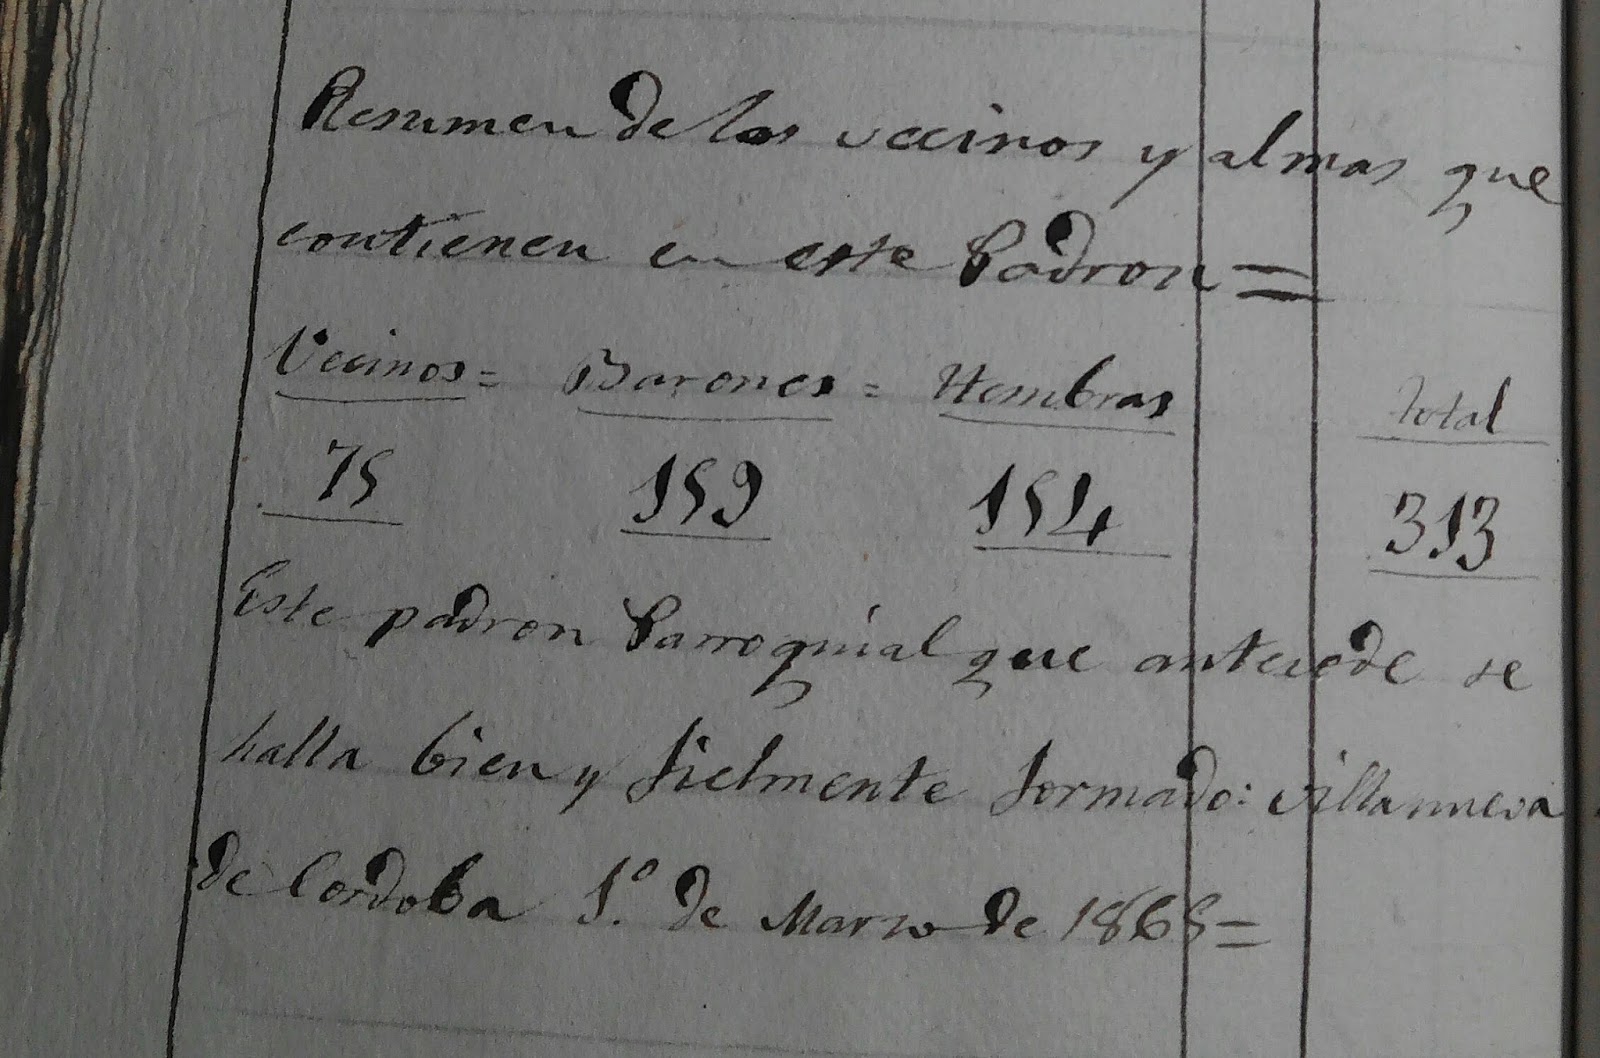 Resumen de los vecinos y almas que
contienen en este Padron=
Vecinos= Barones= Hembras Total
75 159 154 313
Este padron Parroquial que antecede se
halla bien y fielmente formado: Villanueva
de Cordoba 1º. de Marzo de 1865=